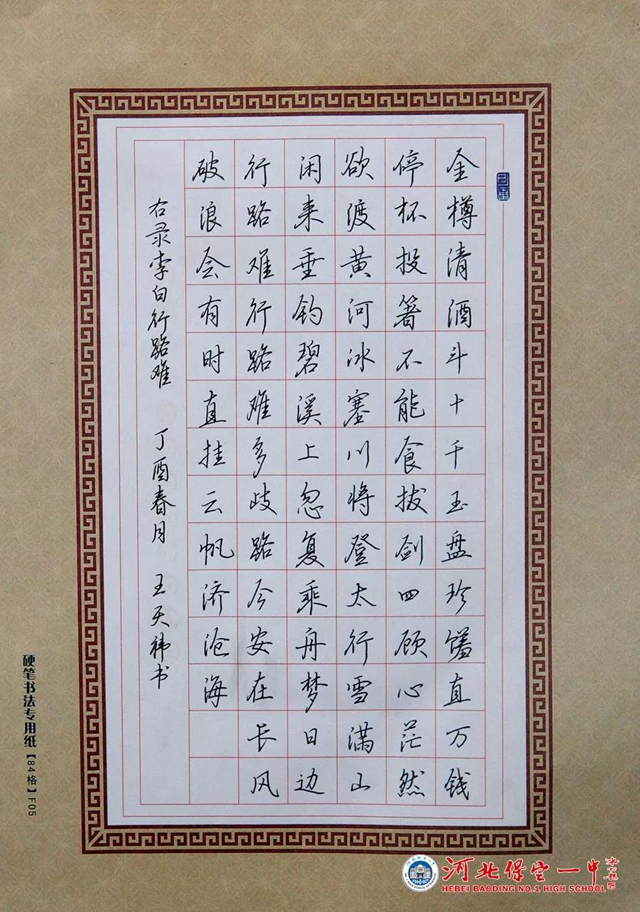 金樽清酒斗十千玉盘珍馐直万钱
停杯投箸不能食拔剑四顾心茫然
欲渡黄河冰塞川将登太行雪满山
闲来垂钓碧溪上忽复乘舟梦日边
行路难行路难多歧路今安在长风
破浪会有时直挂云帆济沧海
右录李白行路难 丁酉春月 王天祎书
硬笔书法专用纸【84格】F05
河北保定一中
HEBEI BAODING NO.1 HIGH SCHOOL